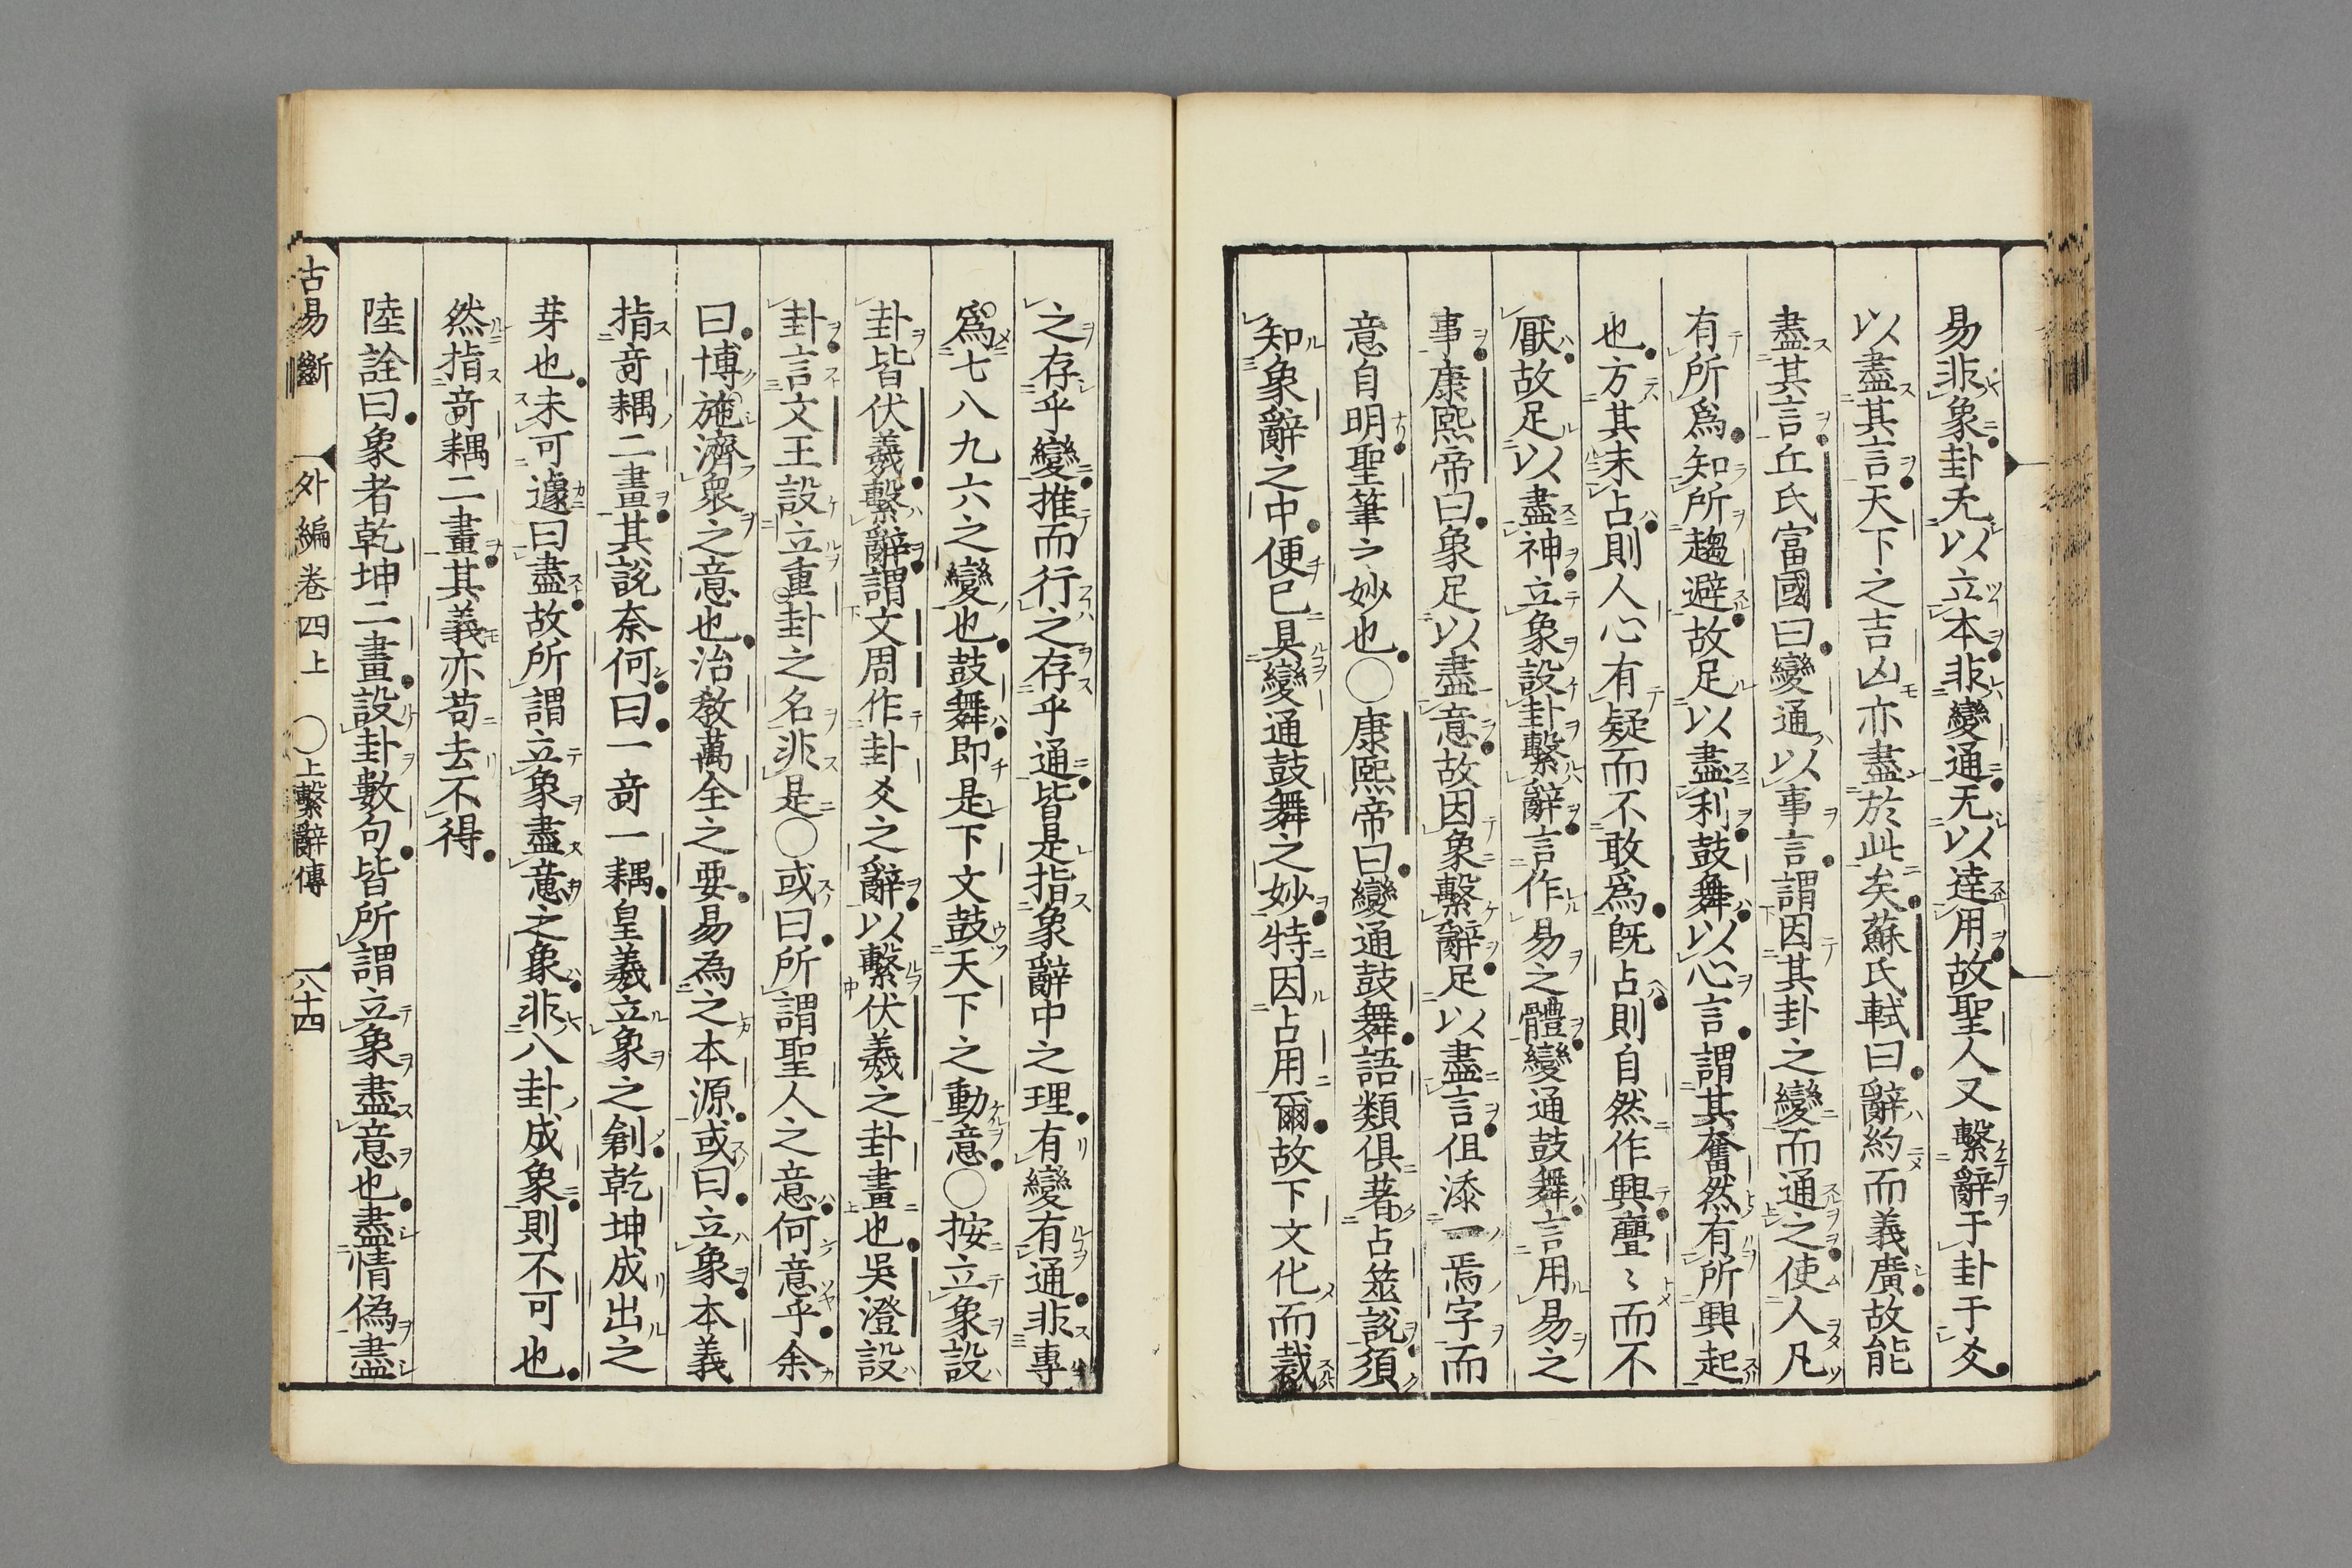 易非象卦无以立本非變通无以達用故聖人又繫辭于卦于爻
以盡其言天下之吉凶亦盡於此矣蘇氏軾曰辭約而義廣故能
盡其言丘氏富國曰變通以事言謂因其卦之變而通之使人凡
有所爲知所趨避故足以盡利鼓舞以心言謂其奮然有所興起
也方其未占則人心有疑而不敢爲旣占則自然作興亹〻而不
厭故足以盡神立象設卦繫辭言作易之體變通鼓舞言用易之
事康熙帝曰象足以盡意故因象繫辭足以盡言但添一焉字而
意自明聖筆之妙也〇康熙帝曰變通鼓舞語類俱著占筮說須
知象辭之中便已具變通鼓舞之妙特因占用爾故下文化而裁
之存乎變推而行之存乎通皆是指象辭中之理有變有通非專
爲七八九六之變也鼓舞即是下文鼓天下之動意〇按立象設
卦皆伏羲繫辭謂文周作卦爻之辭以繫伏羲之卦畫也吳澄設
卦言文王設立重卦之名非是〇或曰所謂聖人之意何意乎余
曰博施濟衆之意也治敎萬全之要易為之本源或曰立象本義
指竒耦二畫其說奈何曰一竒一耦皇羲立象之創乾坤成出之
芽也未可遽曰盡故所謂立象盡意之象非八卦成象則不可也
然指竒耦二畫其義亦苟去不得
陸詮曰象者乾坤二畫設卦數句皆所謂立象盡意也盡情偽盡
古易斷　外編卷四上　〇上繫辭傳　六十四